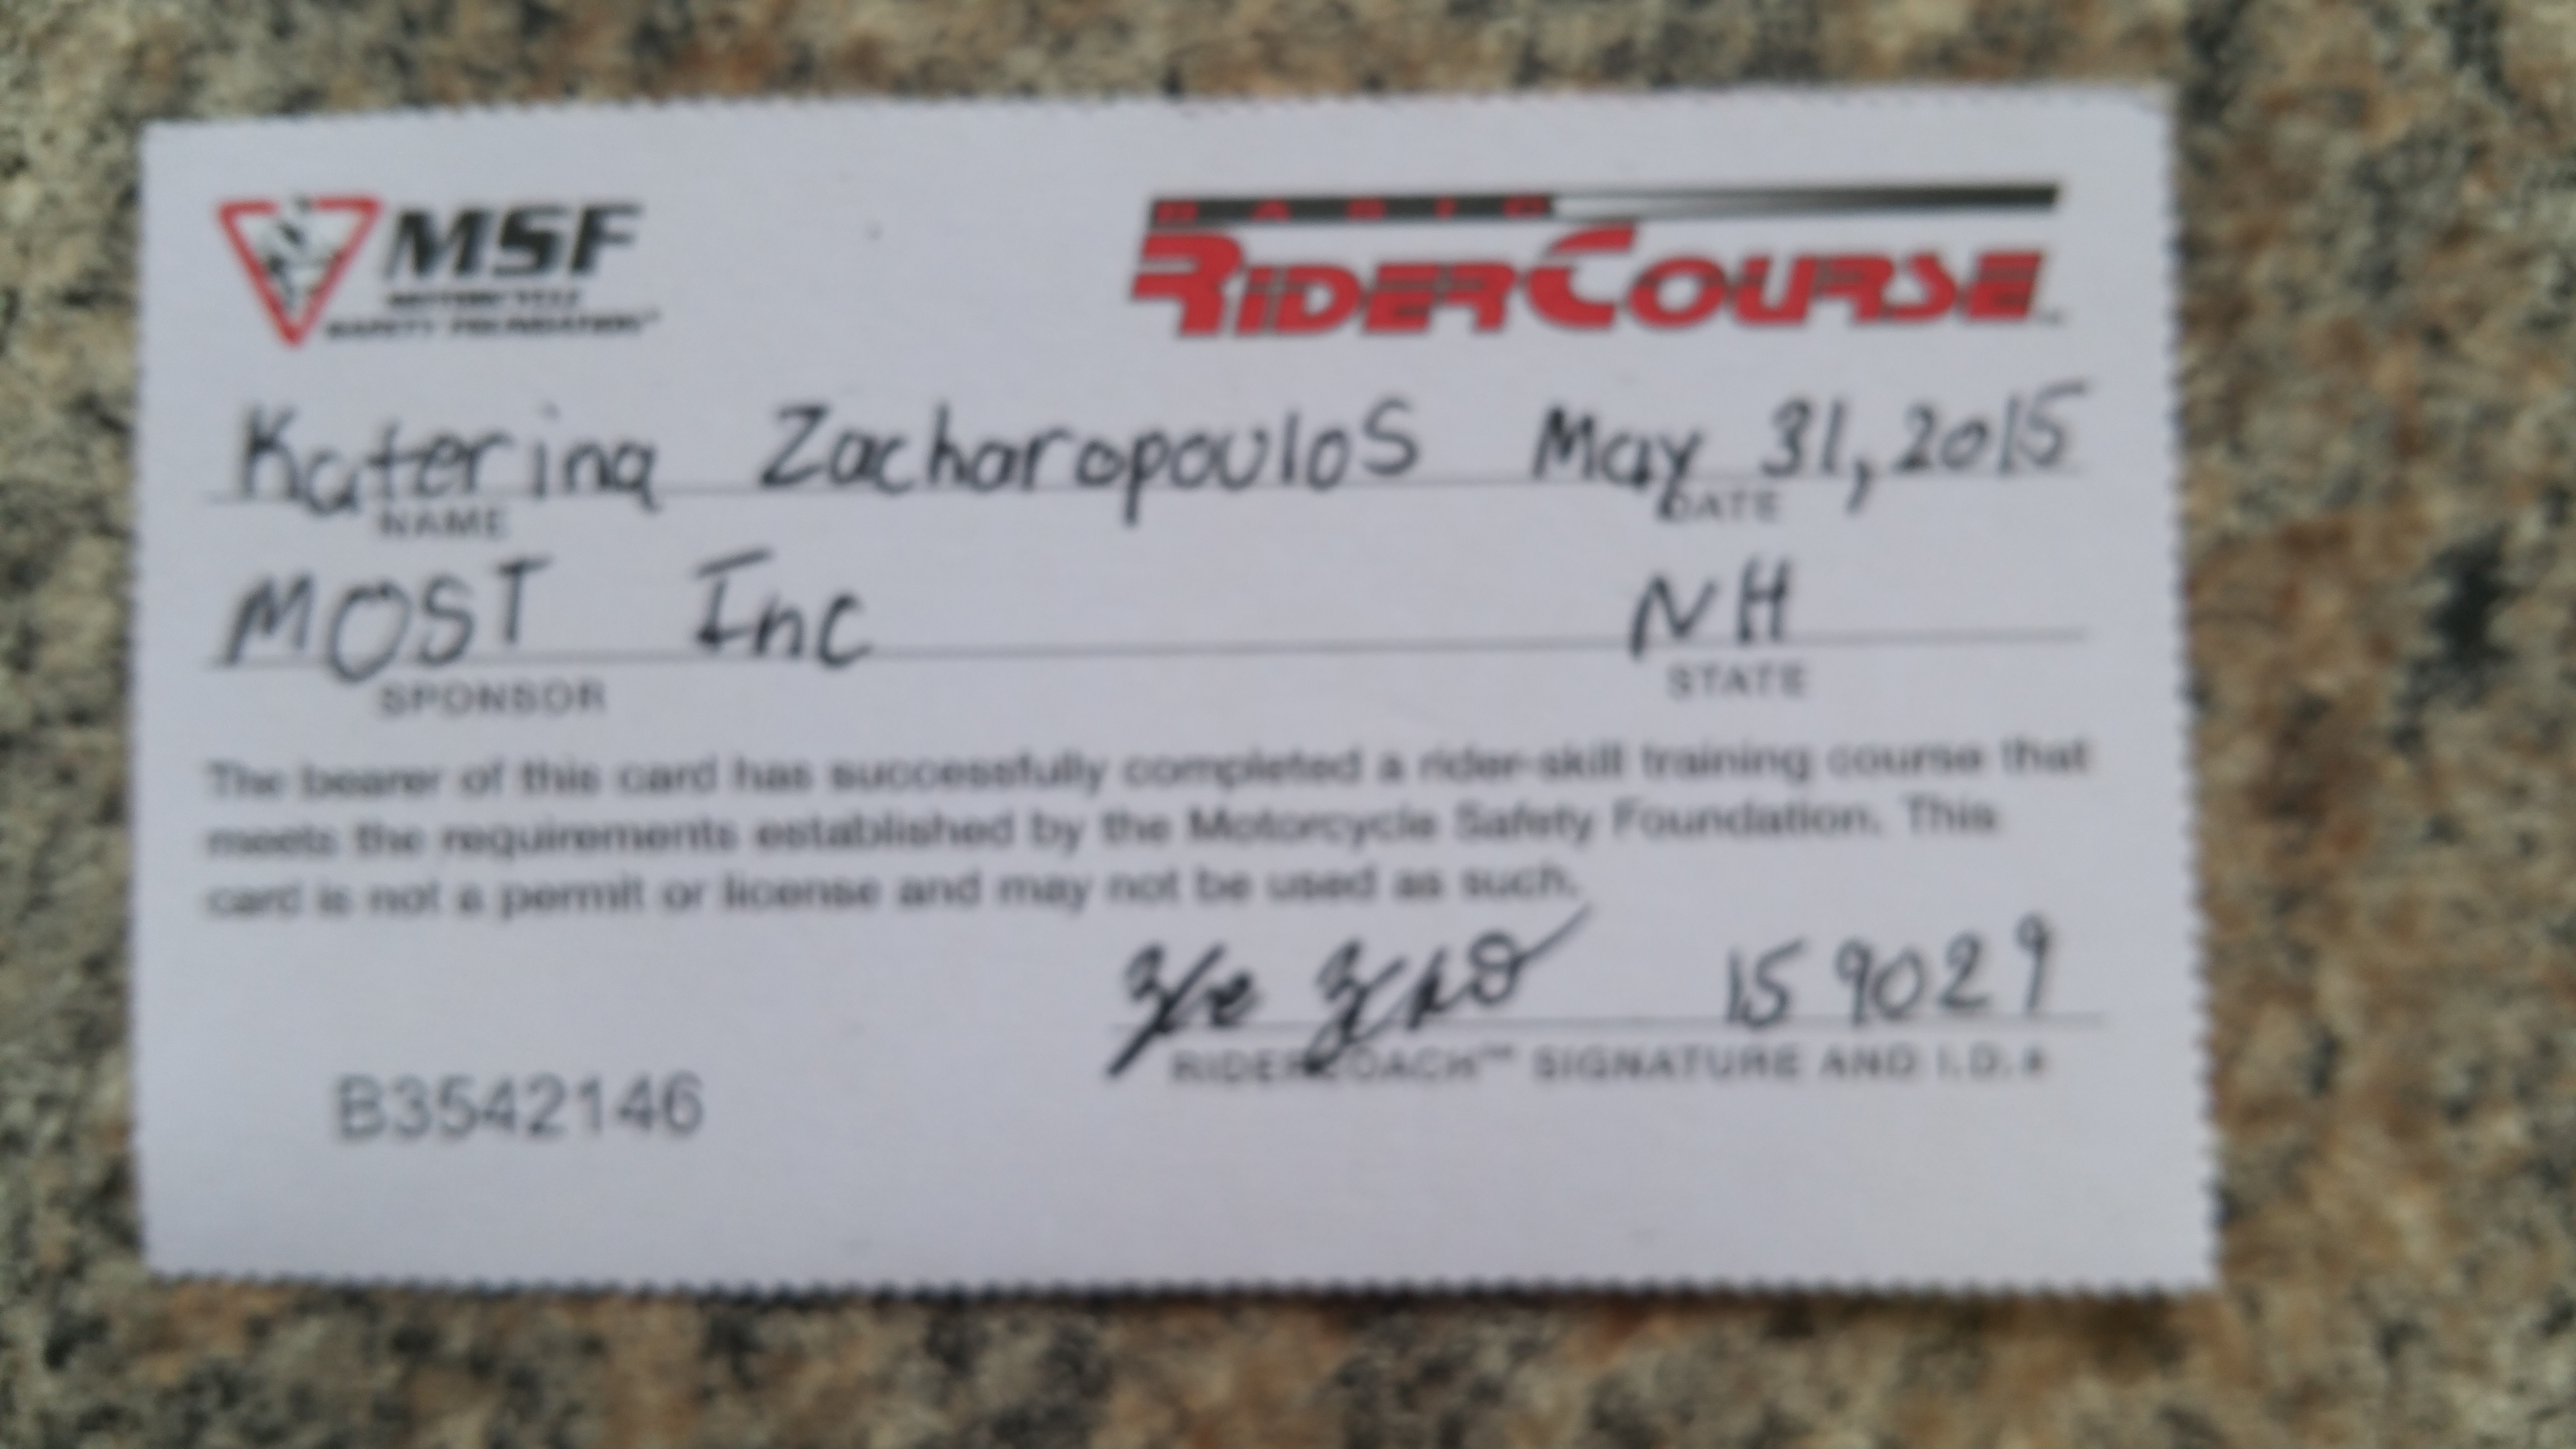 MSF
MOTORCYCLE
SAFETY FOUNDATION
BASIC
RIDERCOURSE
Katerina Zacharopoulos May 31, 2015
NAME DATE
MOST Inc NH
SPONSOR STATE
The bearer of this card has successfully completed a rider-skill training course that
meets the requirements established by the Motorcycle Safety Foundation. This
card is not a permit or license and may not be used as such.
159029
B3542146
RIDERCOACH™ SIGNATURE AND I.D.#